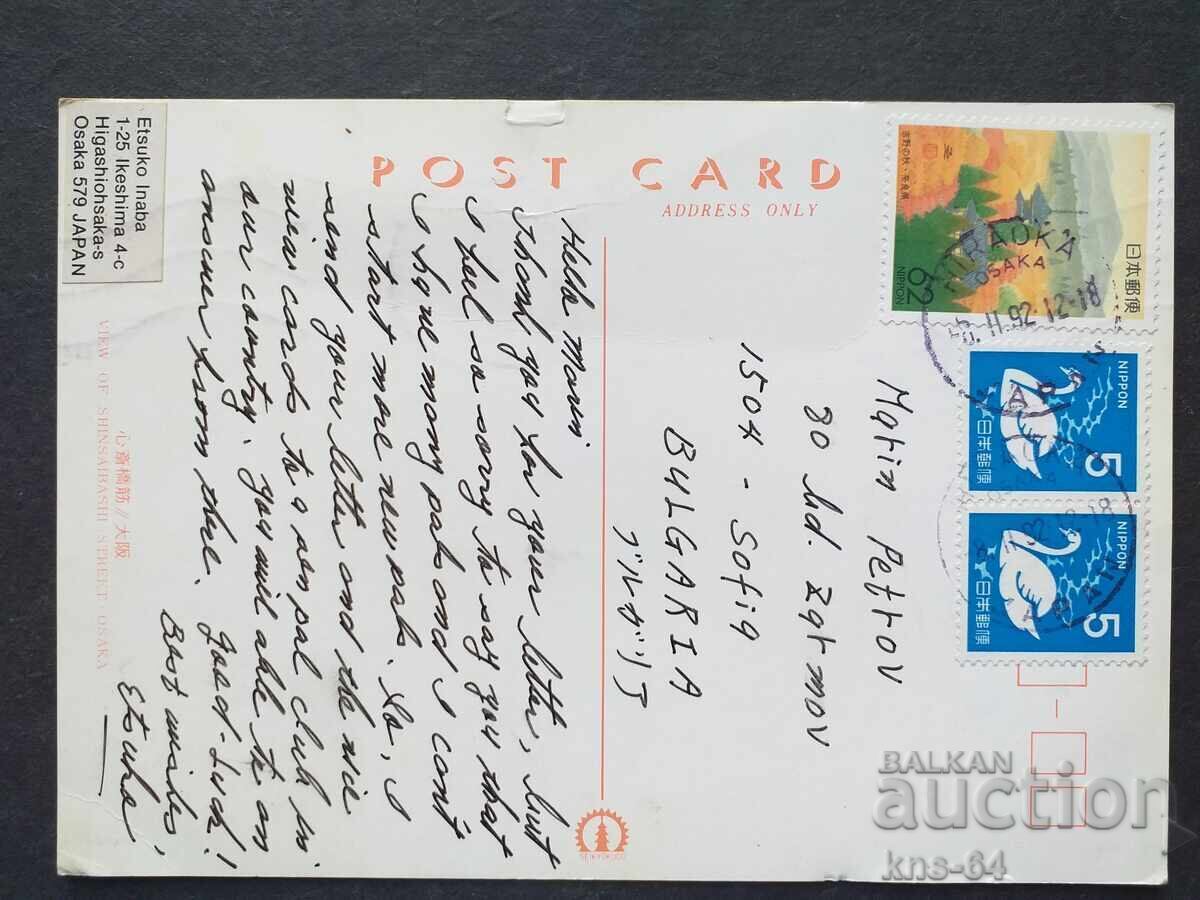 POST CARD
ADDRESS ONLY
Etsuko Inaba
1-25 Ikeshima 4-c
Higashiohsaka-s
Osaka 579 JAPAN
Hello Marin
Thank you for your letter, but
I feel so sorry to say you that
I have many pals and I cant
start more new pals. So, I
send your letter and the nice
view cards to a penpal club in
our country. you will able to an
answer from there. Good-Luck!
Best wishes,
Etsuko
心斎橋筋 // 大阪
VIEW OF SHINSAIBASHI STREET OSAKA
Matin Petrov
80 hd. Zqt mov
1504 - Sofiq
BULGARIA
ブルガリア
吉野の秋・奈良県
62
NIPPON
日本郵便
HIRAOKA
OSAKA
6.II.92.12-18
JAPAN
NIPPON
5
日本郵便
NIPPON
5
日本郵便
92.12-18
SEIKYOKUDO
BALKAN
auction
kns-64